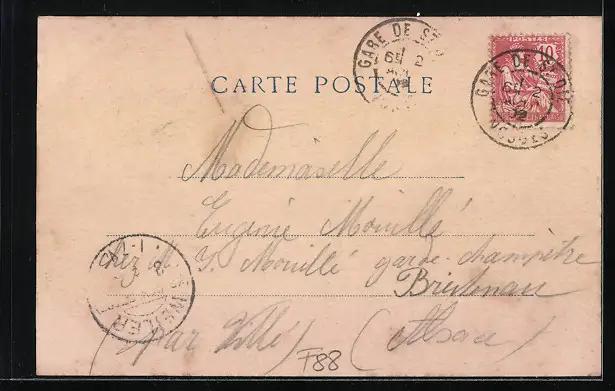 CARTE POSTALE
GARE DE ST DIÉ
GARE DE ST DIÉ
VOSGES
POSTES
10
Mademoiselle
Eugénie Mouillé
chez M. J. Mouillé garde-champêtre
Breitenau
(par Villé) (Alsace)
F88